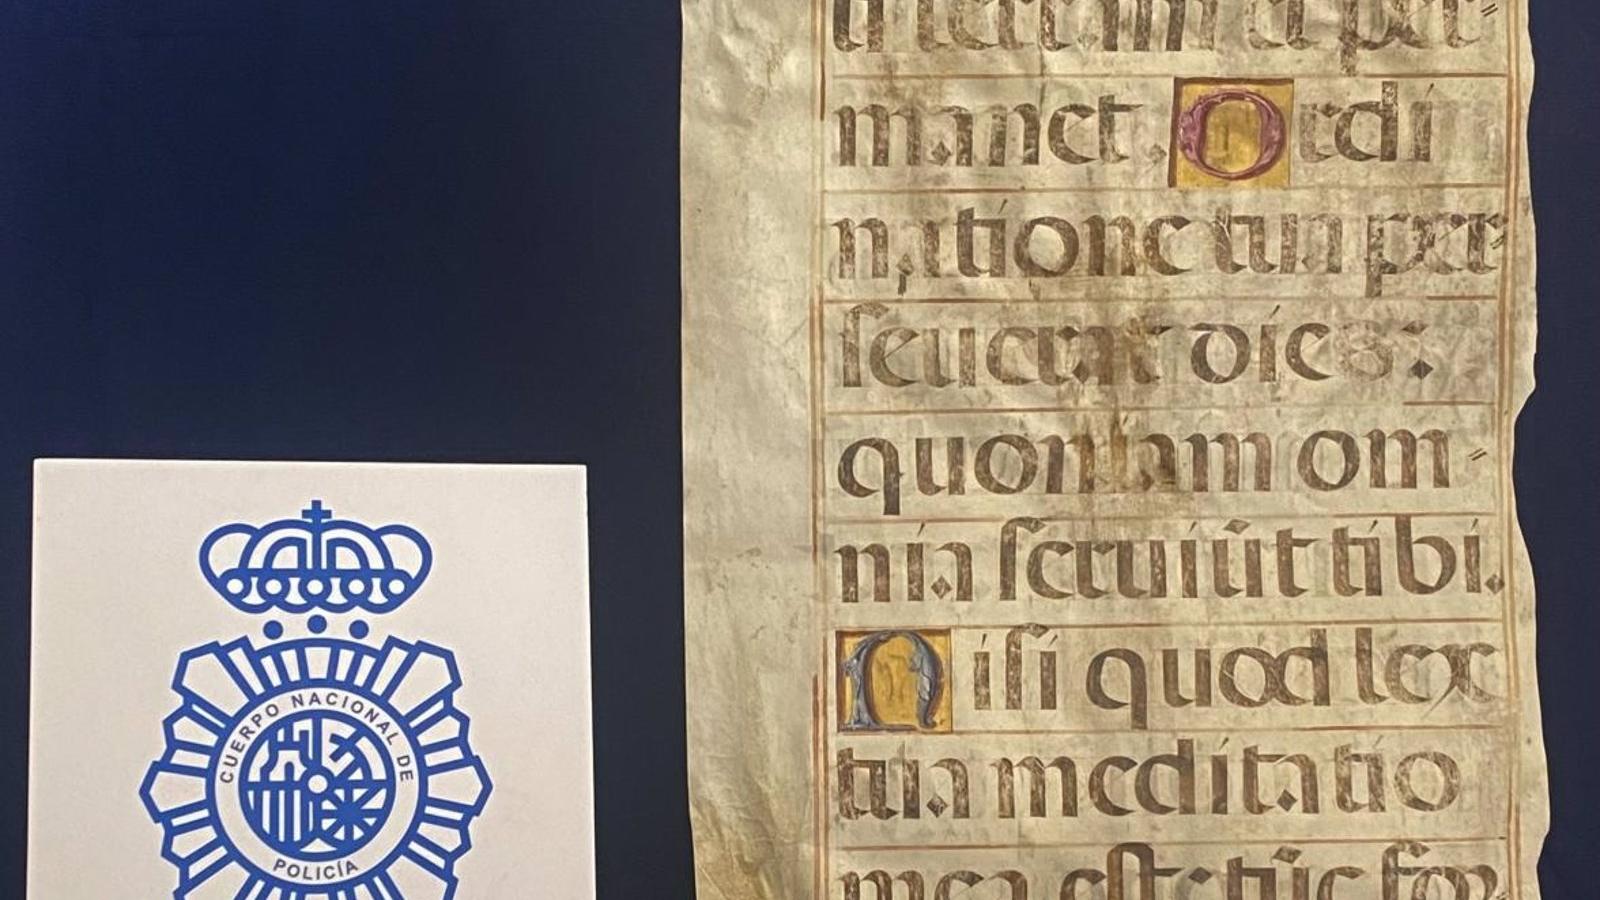 CUERPO NACIONAL DE
POLICÍA
ti terram et per=
manet. Ordi
natione tua per=
seuerat dies:
quoniam om=
nia seruiūt tibi.
Nisi quod lex
tua meditatio
mea est: tūc for=